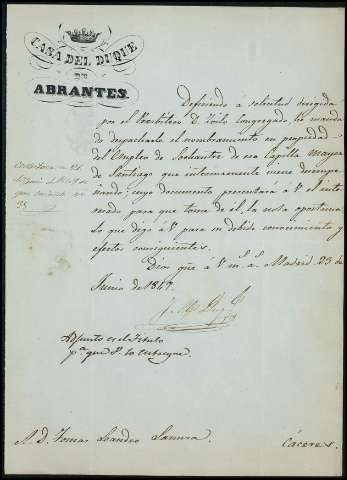 CASA DEL DUQUE
DE
ABRANTES.
Defiriendo á solicitud dirigida
por el Presbítero D. Toilo Congregado, he manda
do despacharle el nombramiento en propiedad
del Empleo de Sochantre de esa Capilla mayor
de Santiago que interinamente viene desempe
ñando; cuyo documento presentará á V. el inte
resado para que tome de él la nota oportuna
lo que digo á V. para su debido conocimiento y
efectos consiguientes.
Dios gũe á V. m. a. Madrid 23 de
Junio de 1847.
Adjunto es el Título
pª que V. lo entregue.
S. D. Tomas Leandro
Cáceres.